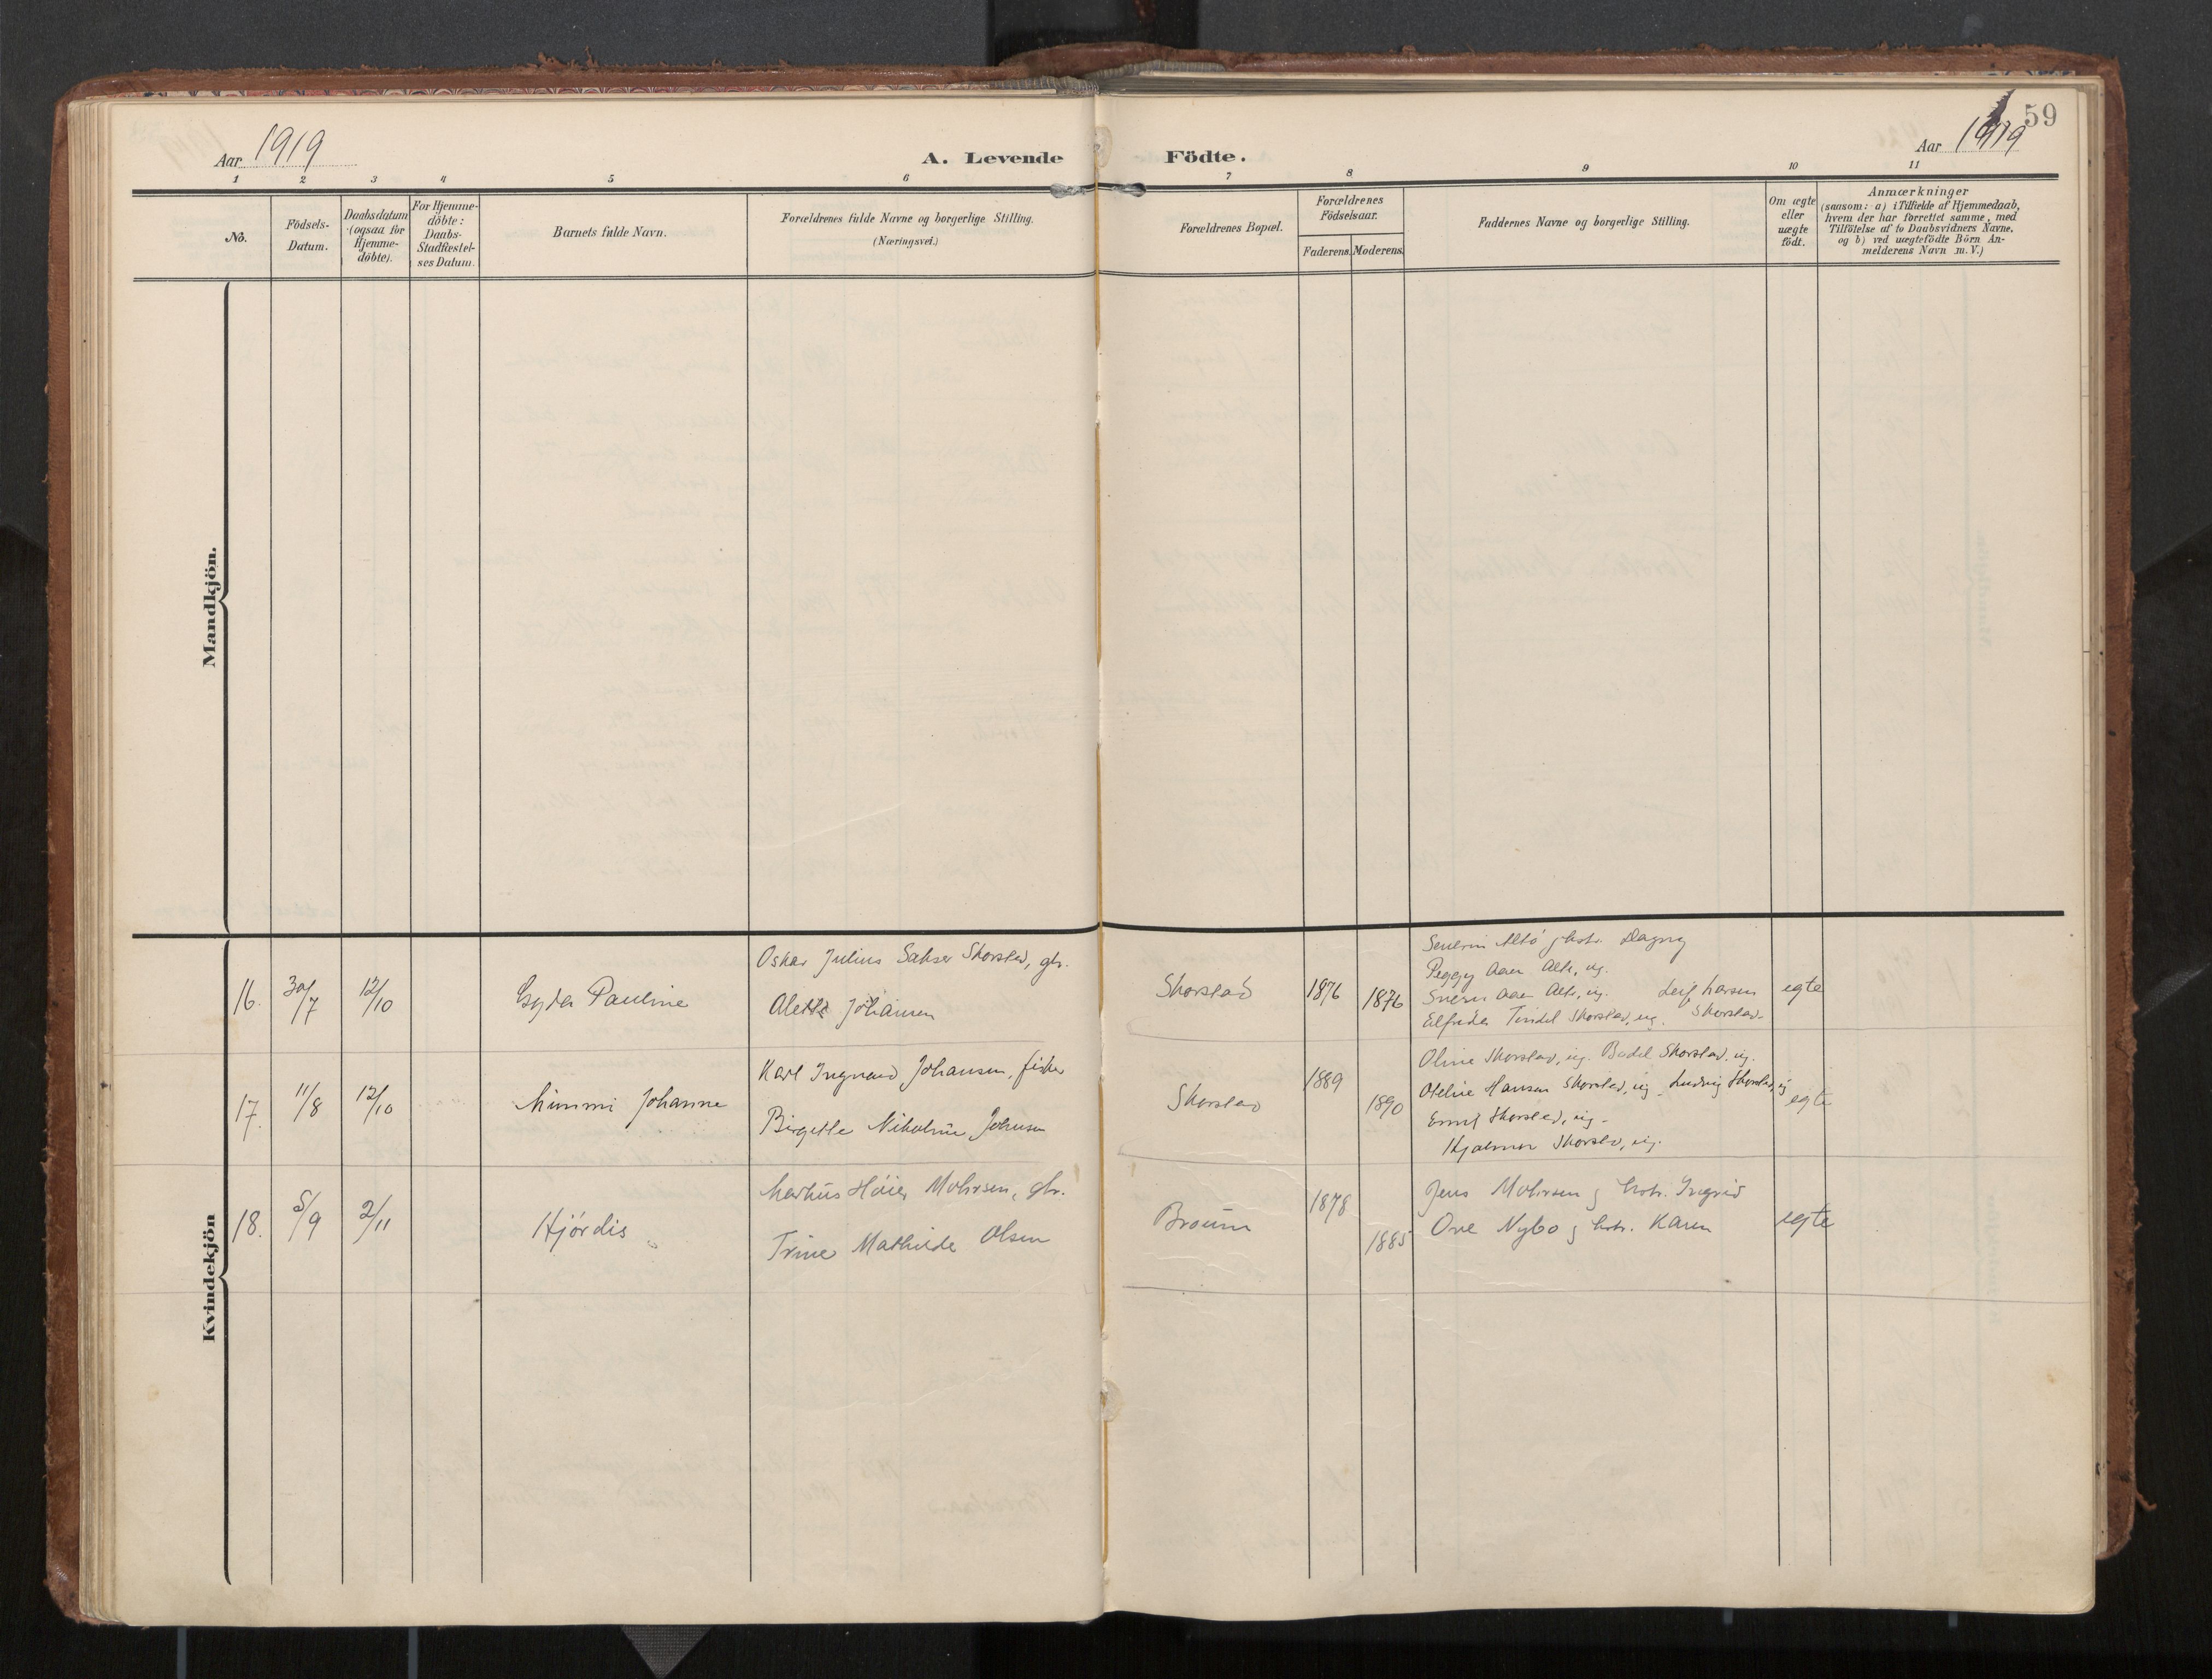 59
Aar 1919
A. Levende Födte.
Aar 1919
1 2 3 4 5 6 7 8 9 10 11
No.
Födsels-
Datum.
Daabsdatum
(ogsaa for
Hjemme-
döbte).
For Hjemme-
döbte:
Daabs-
Stadfæstel-
ses Datum.
Barnets fulde Navn.
Forældrenes fulde Navne og borgerlige Stilling.
(Næringsvei.)
Forældrenes Bopæl.
Forældrenes
Födselsaar.
Faderens. Moderens.
Faddernes Navne og borgerlige Stilling.
Om ægte
eller
uægte
födt.
Anmærkninger
(saasom: a) i Tilfælde af Hjemmedaab,
hvem der har forrettet samme, med
Tilföielse af to Daabsvidners Navne,
og b) ved uægtefödte Börn An-
melderens Navn m. V.)
Mandkjön.
Kvindekjön
16. 30/7 12/10 Pauline
Oskar Julius Skorstad, gbr.
Johansen
Skorstad 1876 1876
Severin Dagny
Peggy Aaen ug.
Aaen ug. Leif Larsen
Elfrida Skorstad, ug. Skorstad
egte
17. 11/8 12/10 Mimmi Johanne
Karl Ingvard Johansen, fisker
Birgitte Nikoline Johnsen
Skorstad 1889 1890
Oline Skorstad, ug. Bodil Skorstad, ug.
Oteline Hansen Skorstad, ug Ludvig Skorstad, ug
Skorstad, ug.
Hjalmar Skorstad, ug.
egte
18. 5/9 2/11 Hjördis
Markus Höier Mohrsen, gbr.
Trine Mathilde Olsen
1878 1885
Jens Mohrsen g hstr. Ingrid
Ove Nybo g hstr. Karen
egte